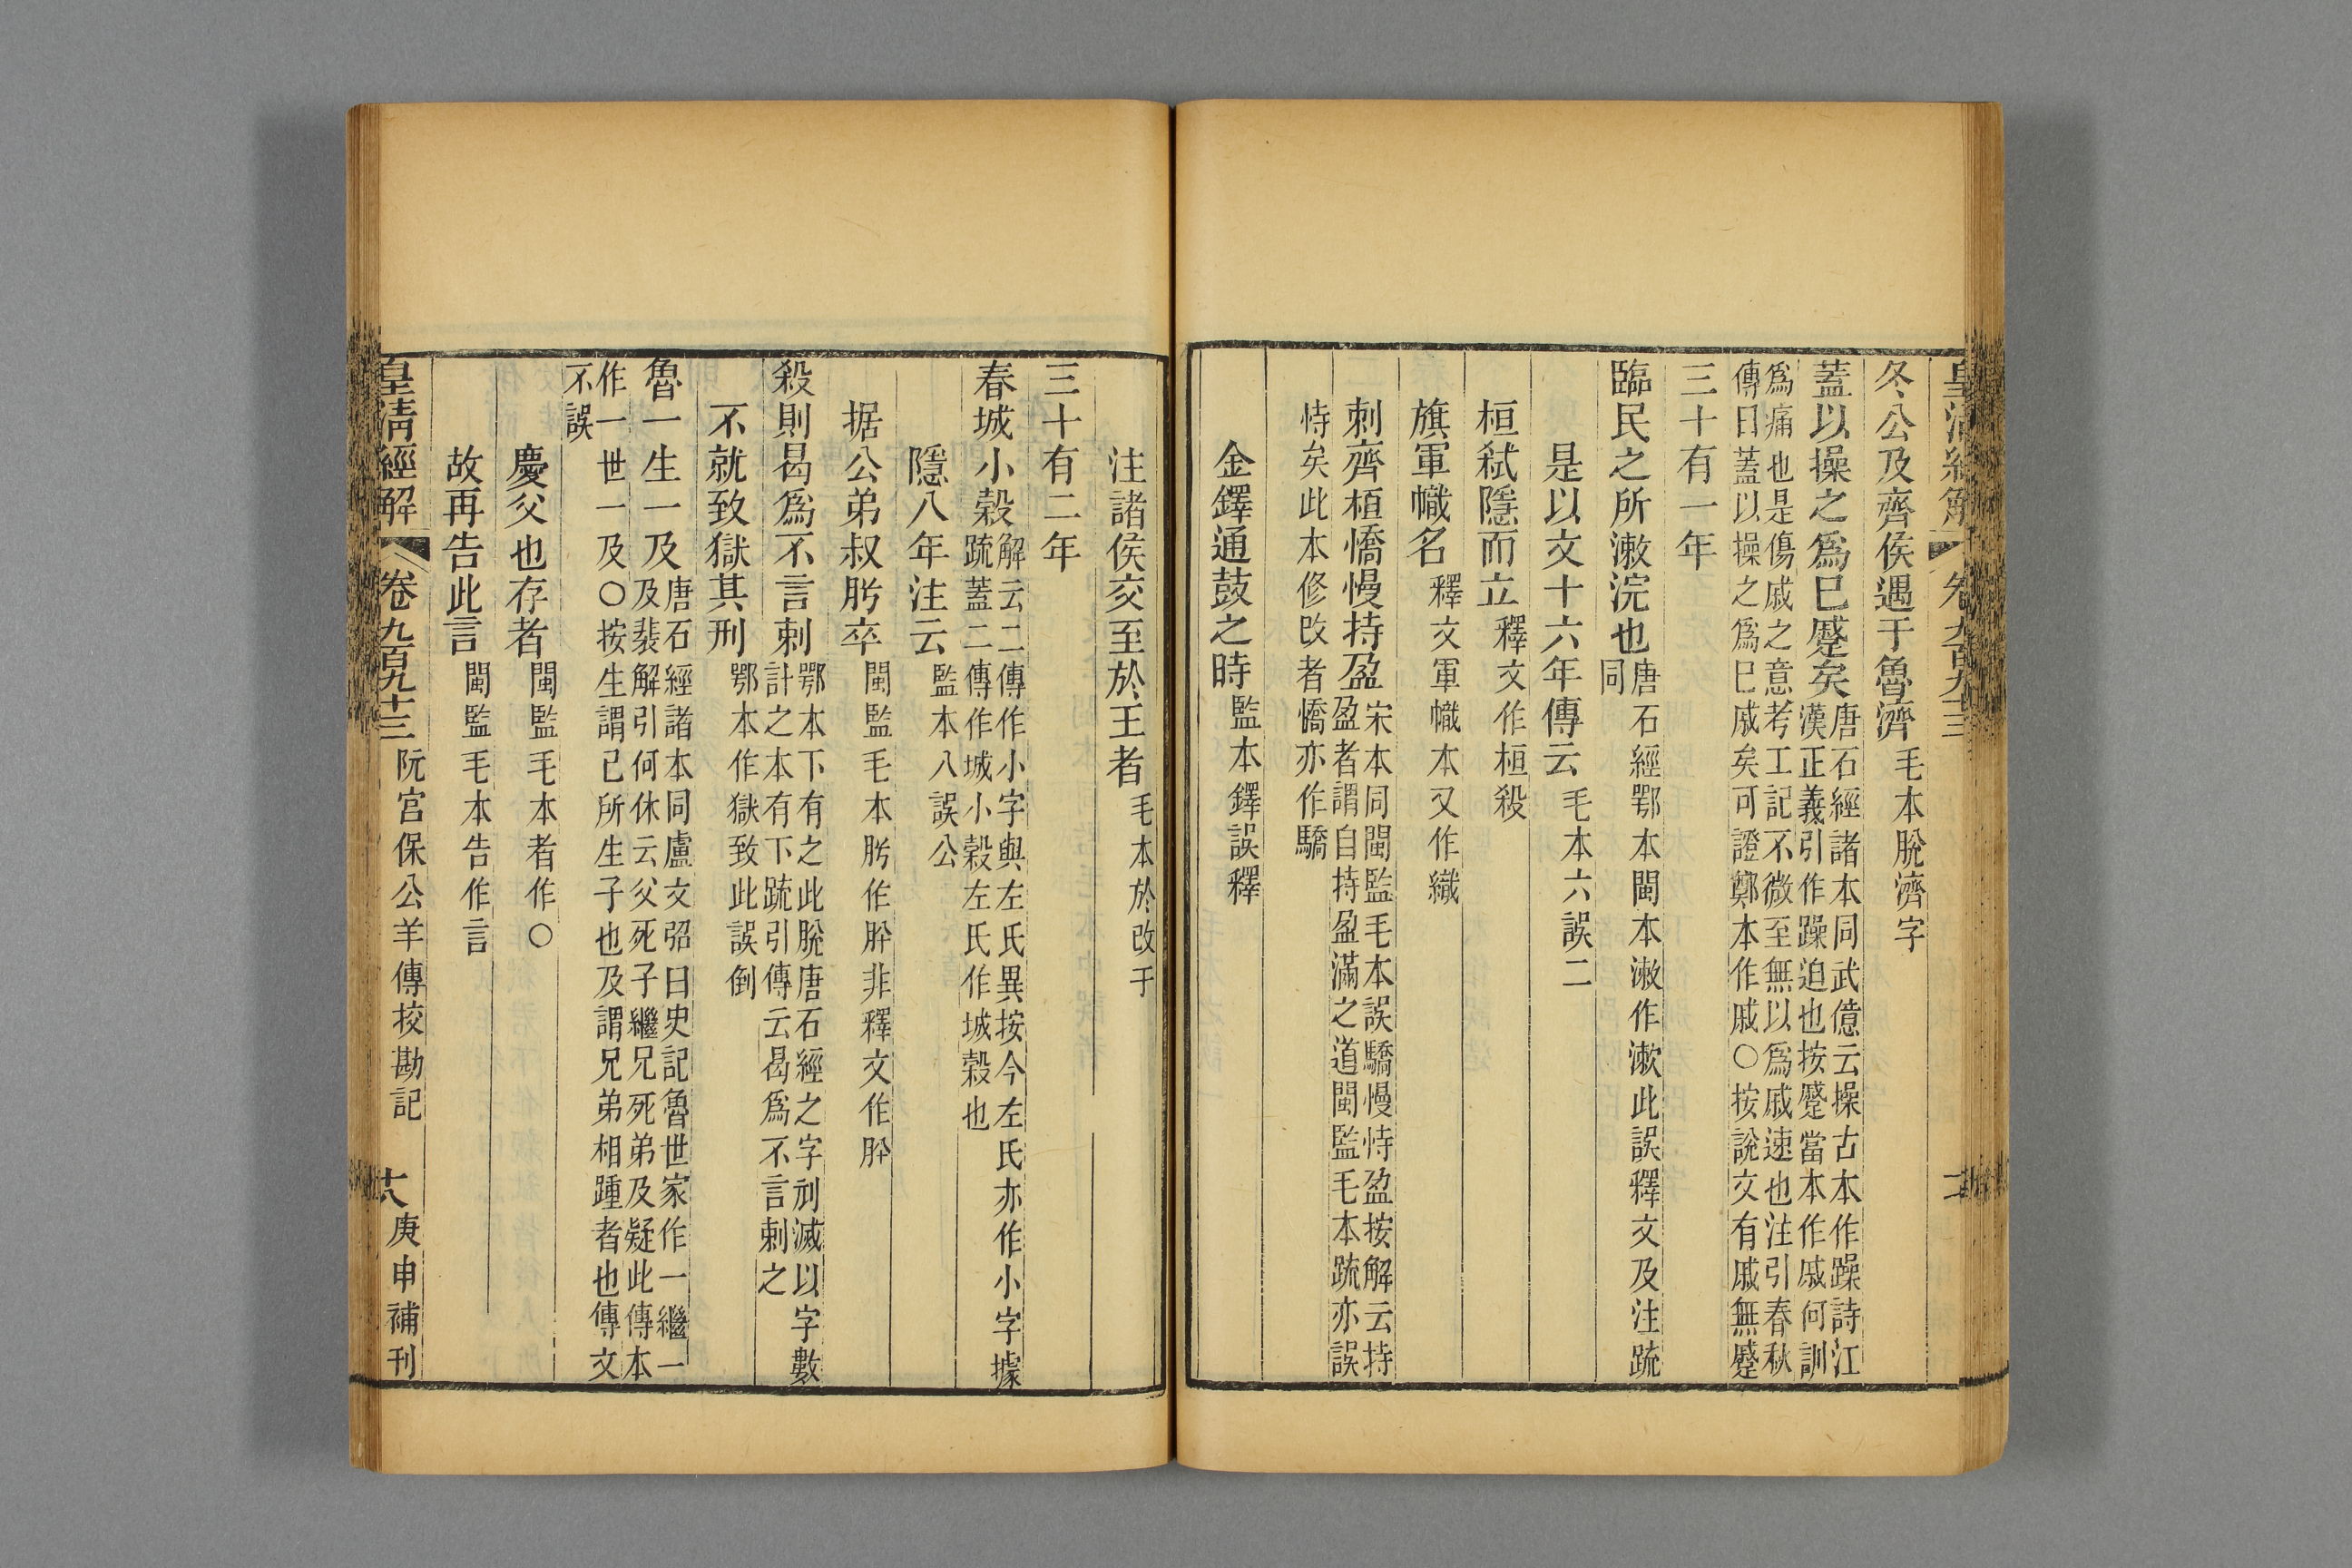 皇清經解 卷九百九十三
冬公及齊侯遇于魯濟毛本脫濟字
蓋以操之爲巳蹙矣唐石經諸本同武億云操古本作躁詩江
漢正義引作躁迫也按蹙當本作戚何訓
爲痛也是傷戚之意考工記不微至無以爲戚速也注引春秋
傳曰蓋以操之爲巳戚矣可證鄭本作戚○按說文有戚無蹙
三十有一年
臨民之所漱浣也唐石經鄂本閩本漱作漱此誤釋文及注疏
同
是以文十六年傳云毛本六誤二
桓弒隱而立釋文作桓殺
旗軍幟名釋文軍幟本又作織
刺齊桓憍慢持盈宋本同閩監毛本誤驕慢恃盈按解云持
盈者謂自持盈滿之道閩監毛本疏亦誤
恃矣此本修改者憍亦作驕
金鐸通鼓之時監本鐸誤釋
注諸侯交至於王者毛本於改于
三十有二年
春城小穀解云二傳作小字與左氏異按今左氏亦作小字據
疏蓋二傳作城小穀左氏作城穀也
隱八年注云監本八誤公
据公弟叔肸卒閩監毛本肸作肹非釋文作肸
殺則曷爲不言刺鄂本下有之此脫唐石經之字刓滅以字數
計之本有下疏引傳云曷爲不言刺之
不就致獄其刑鄂本作獄致此誤倒
魯一生一及唐石經諸本同盧文弨曰史記魯世家作一繼一
及裴解引何休云父死子繼兄死弟及疑此傳本
作一世一及○按生謂己所生子也及謂兄弟相踵者也傳文
不誤
慶父也存者閩監毛本者作○
故再告此言閩監毛本告作言
皇清經解 卷九百九十三 阮宮保公羊傳挍勘記 十八 庚申補刊